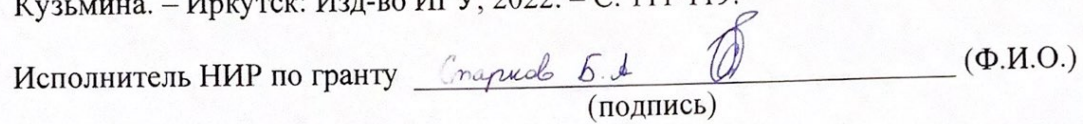 Кузьмина. – Иркутск: Изд-во ИГУ, 2022. – С. 111-119.
Исполнитель НИР по гранту Старков Б.А (Ф.И.О.)
(подпись)